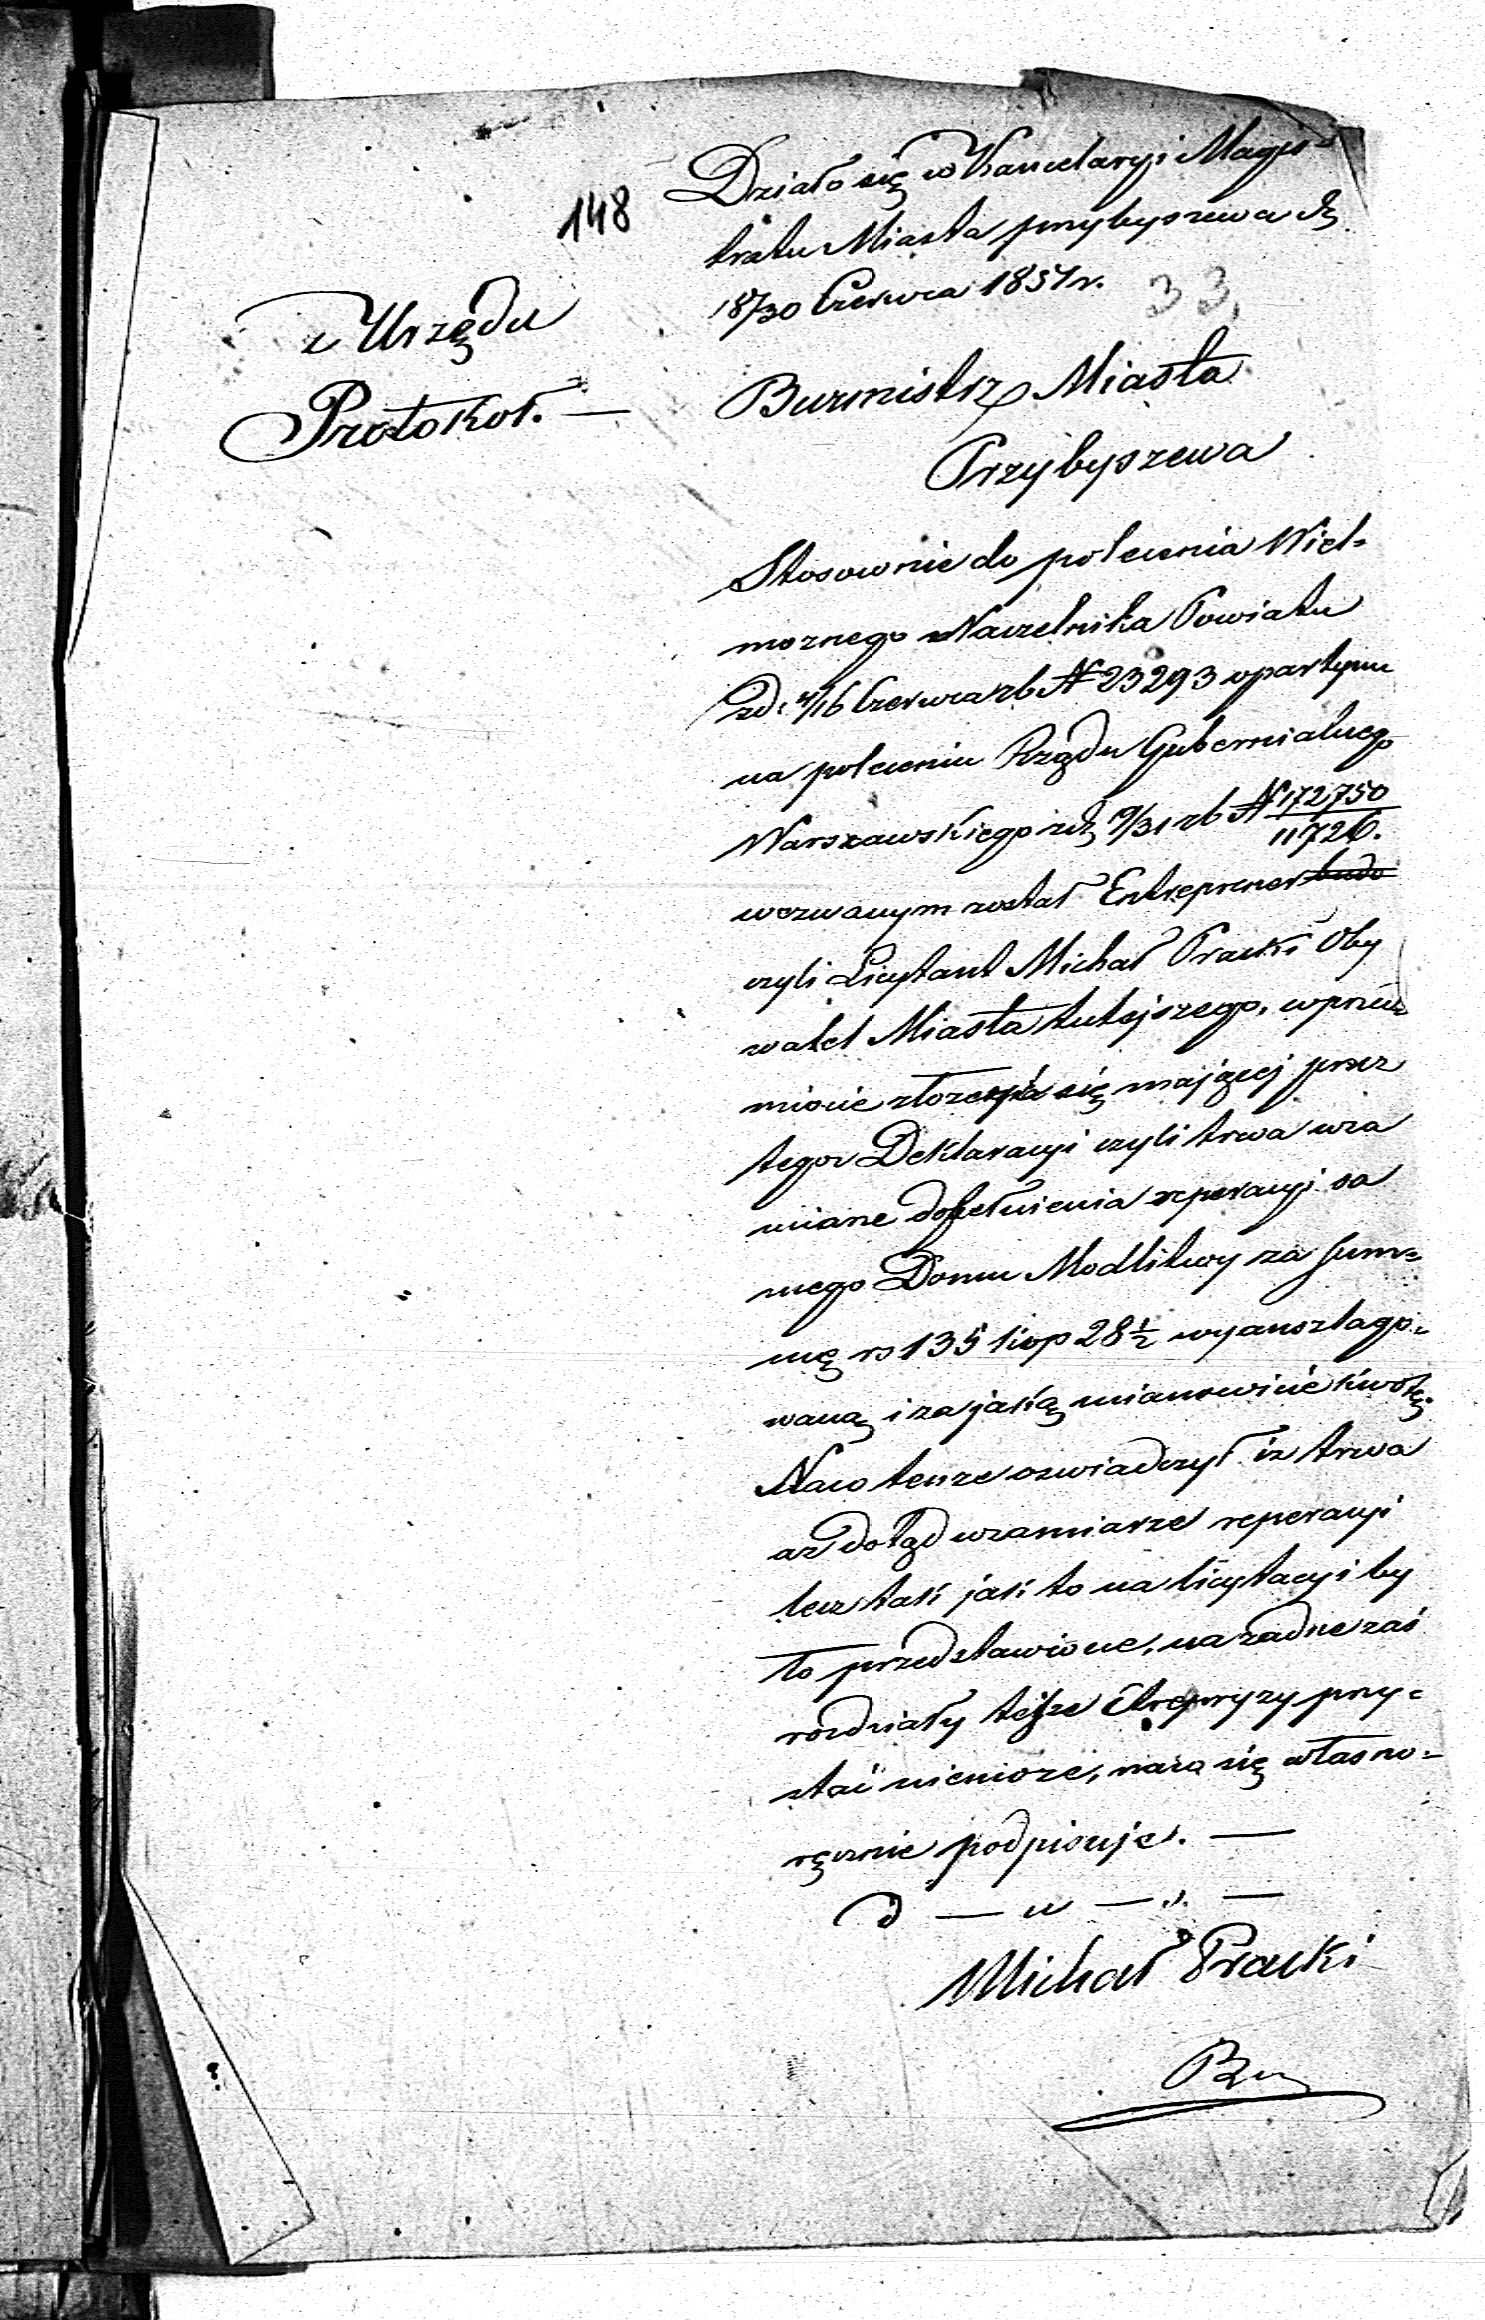 148
z Urzędu
Protokoł. —
Działo się w Kancelaryi Magis=
tratu Miasta przybyszewa d.
18/30 Czerwca 1857 r.
33
Burmistrz Miasta
Przybyszewa
Stosownie do polecenia Wiel=
moznego Naczelnika Powiatu
zd: 4/16 Czerwca rb N 23293 opartym
na poleceniu Rządu Gubernialnego
Warszawskiego zd 19/31 rb N 172750/11726.
wezwanym został Entreprener
czyli Licytant Michał Pracki Oby
watel Miasta tutejszego, w przed=
miocie złozenia się mającej przez
tegoz Deklaracyi czyli trwa wza
miarze dopełnienia reperacyi sa
mego Domu Modlitwy za Sum=
mę rs 135 kop 28 ½ wyanszlago=
waną i za jaką mianowicie kwotę
Naco tenze oswiadczył iz trwa
az dotąd wzamiarze reperacyi
lecz tak jak to na licytacyi by
ło przedstawione, na zadne zaś
rozdziały tejze Etrepryzy przy=
stać niemoze, naco się własno=
ręcznie podpisuje. —
d — u — s. —
Michał Pracki